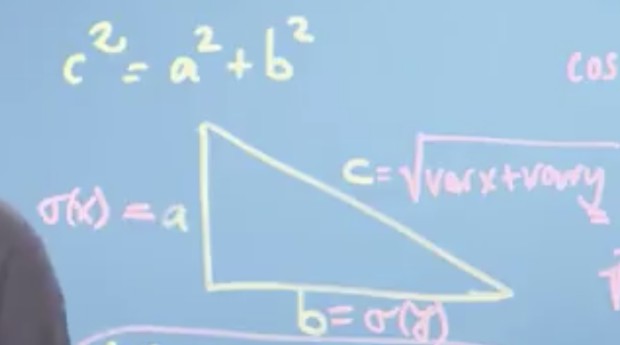 c² = a² + b²
cos
c = √var x + var y
σ(x) = a
b = σ(y)